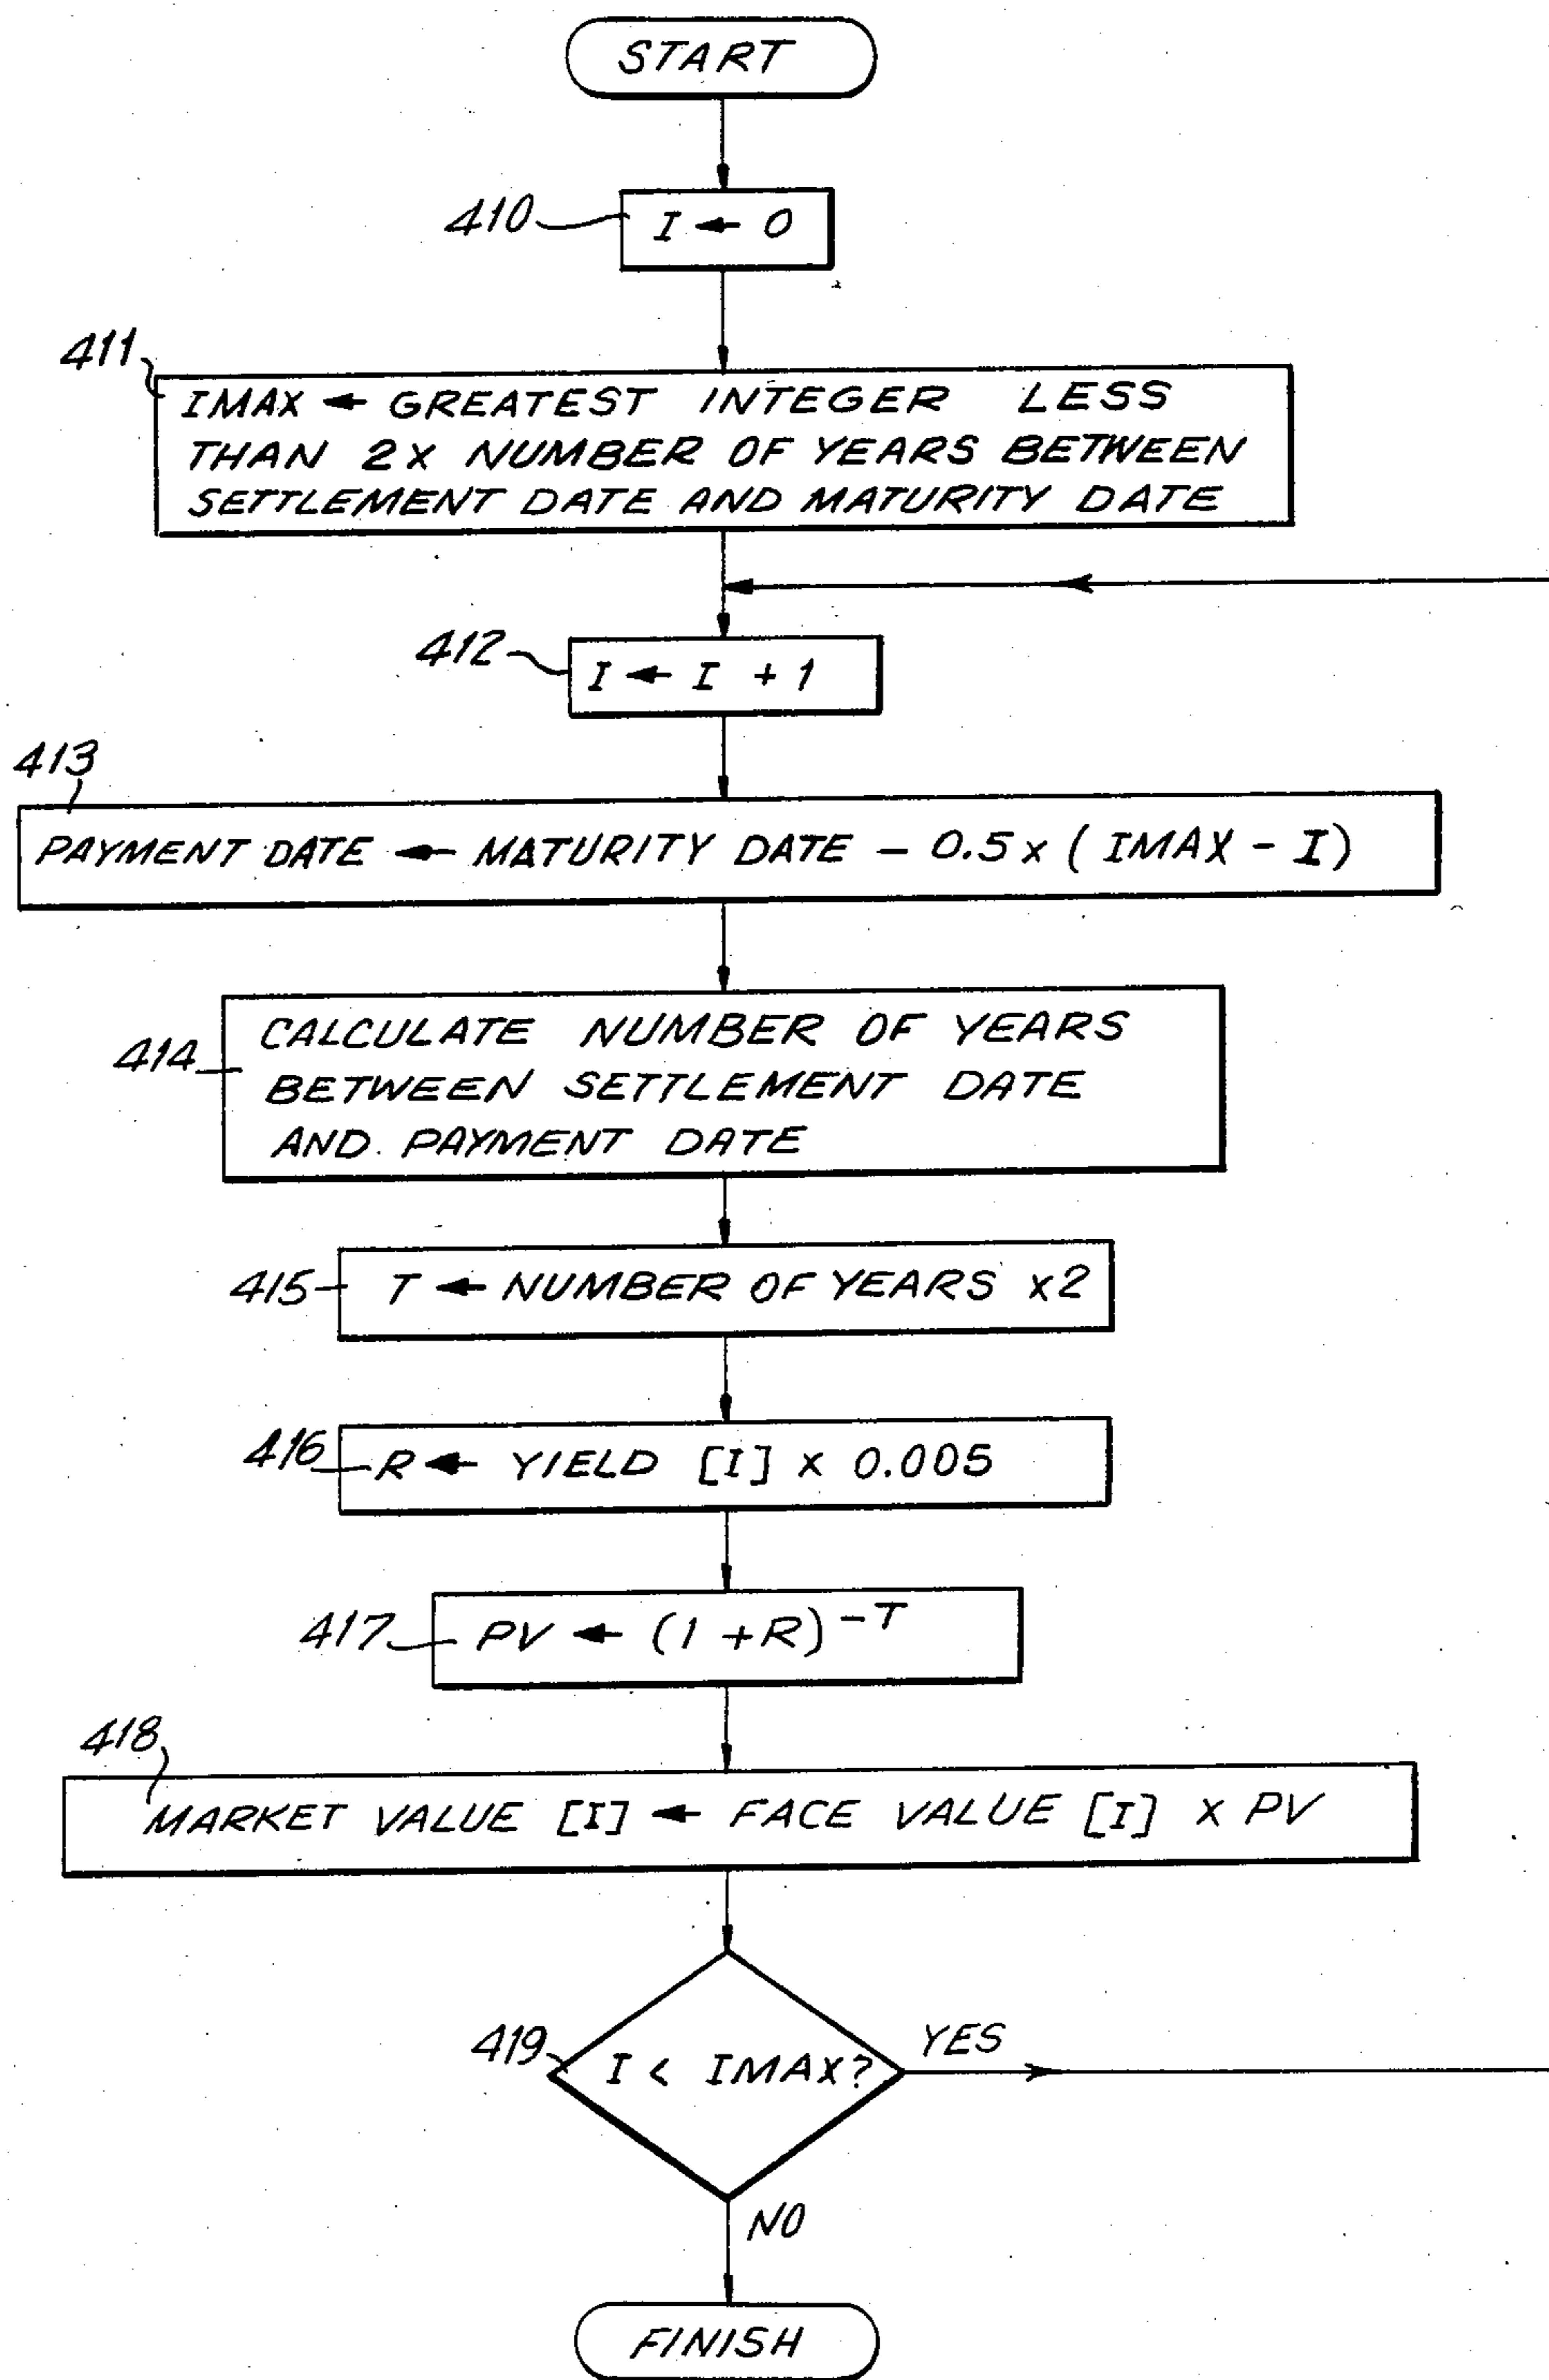 START
410
I ← 0
411
IMAX ← GREATEST INTEGER LESS
THAN 2X NUMBER OF YEARS BETWEEN
SETTLEMENT DATE AND MATURITY DATE
412
I ← I + 1
413
PAYMENT DATE ← MATURITY DATE - 0.5 x ( IMAX - I )
414
CALCULATE NUMBER OF YEARS
BETWEEN SETTLEMENT DATE
AND PAYMENT DATE
415
T ← NUMBER OF YEARS x2
416
R ← YIELD [I] x 0.005
417
PV ← (1 + R)^-T
418
MARKET VALUE [I] ← FACE VALUE [I] x PV
419
I < IMAX?
YES
NO
FINISH